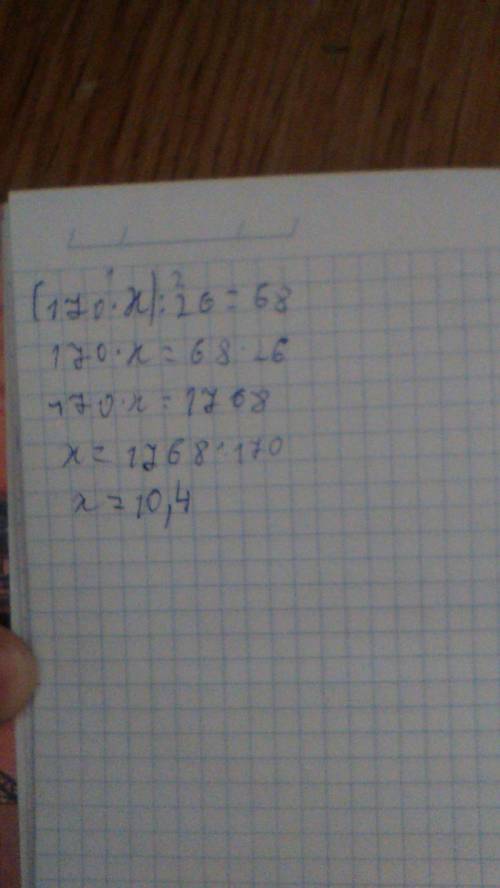 (170·x):26=68
170·x=68·26
170·x=1768
x=1768:170
x=10,4